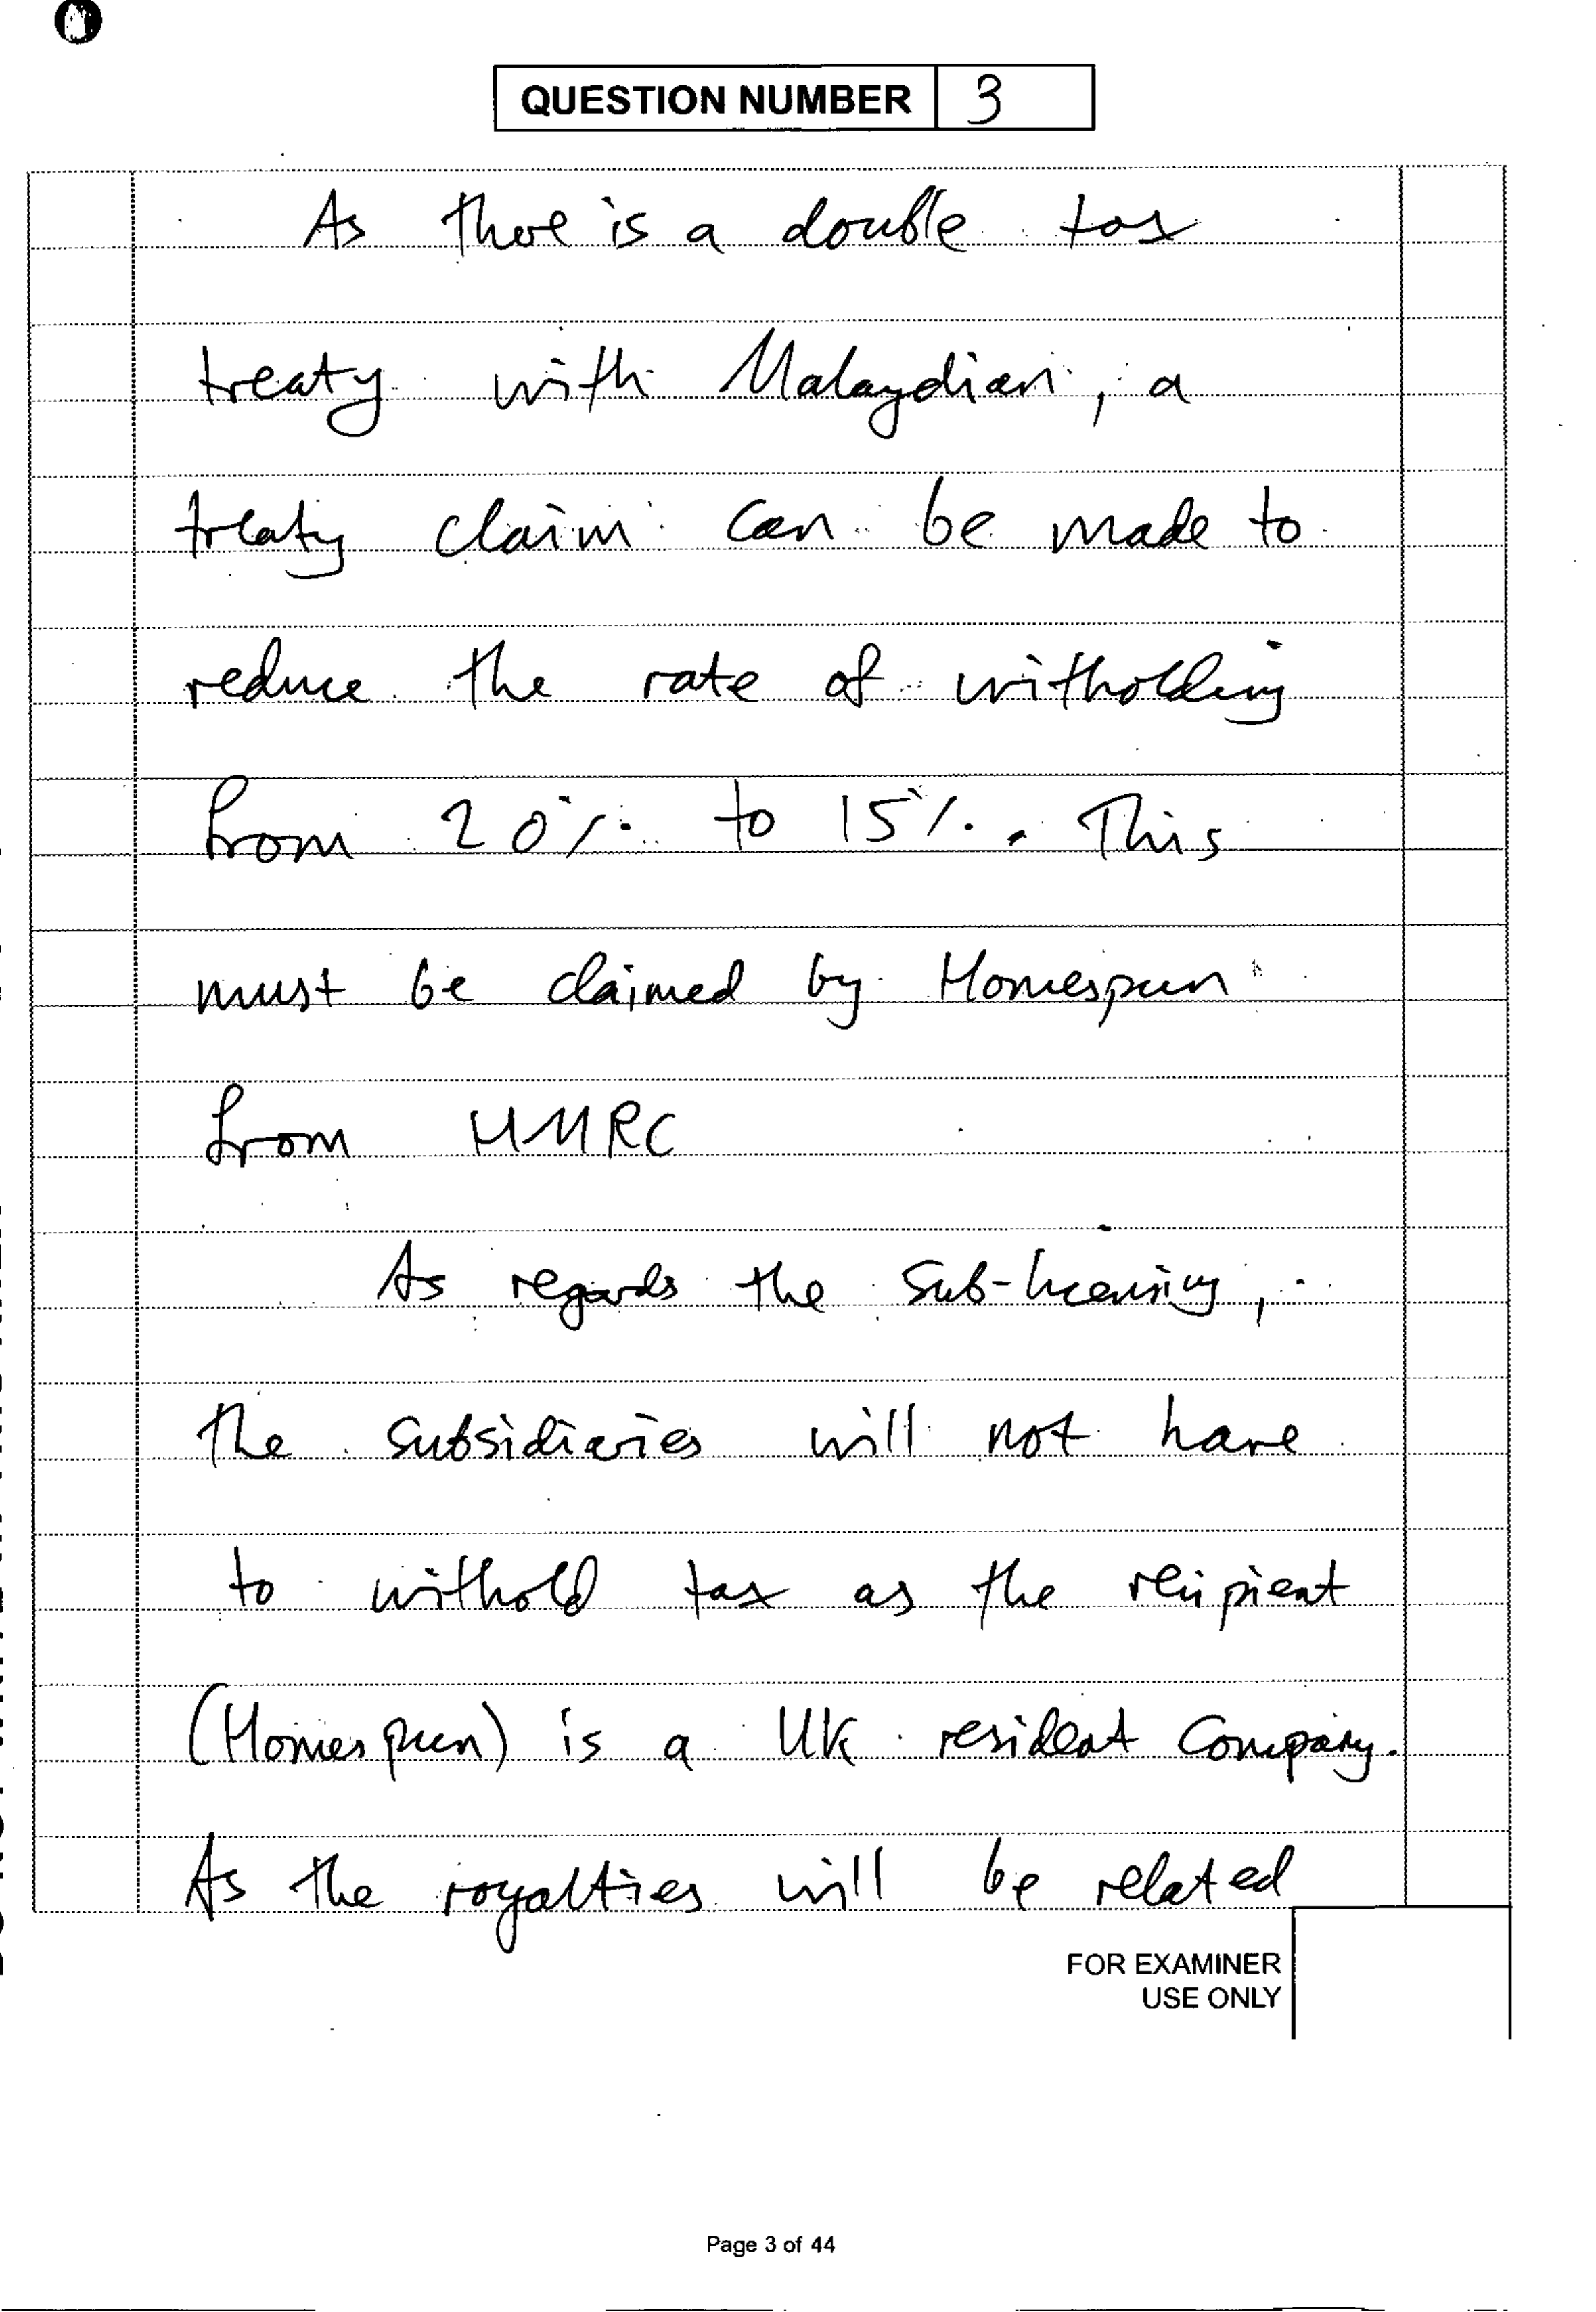 QUESTION NUMBER 3
As there is a double tax
treaty with Malaydian, a
treaty claim can be made to
reduce the rate of witholding
from 20% to 15%. This
must be claimed by Homespun
from HMRC
As regards the Sub-licensing,
the subsidiaries will not have
to withold tax as the recipient
(Homespun) is a UK resident Company.
As the royalties will be related
FOR EXAMINER
USE ONLY
Page 3 of 44